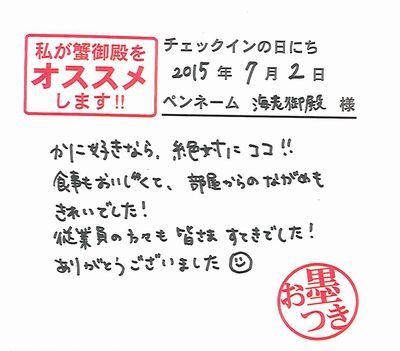 私が蟹御殿を
オススメ
します!!
チェックインの日にち
2015年 7月 2日
ペンネーム 海老御殿 様
かに好きなら、絶対にココ!!
食事もおいしくて、部屋からのながめも
きれいでした!
従業員の方々も皆さま すてきでした!
ありがとうございました☺
お墨つき